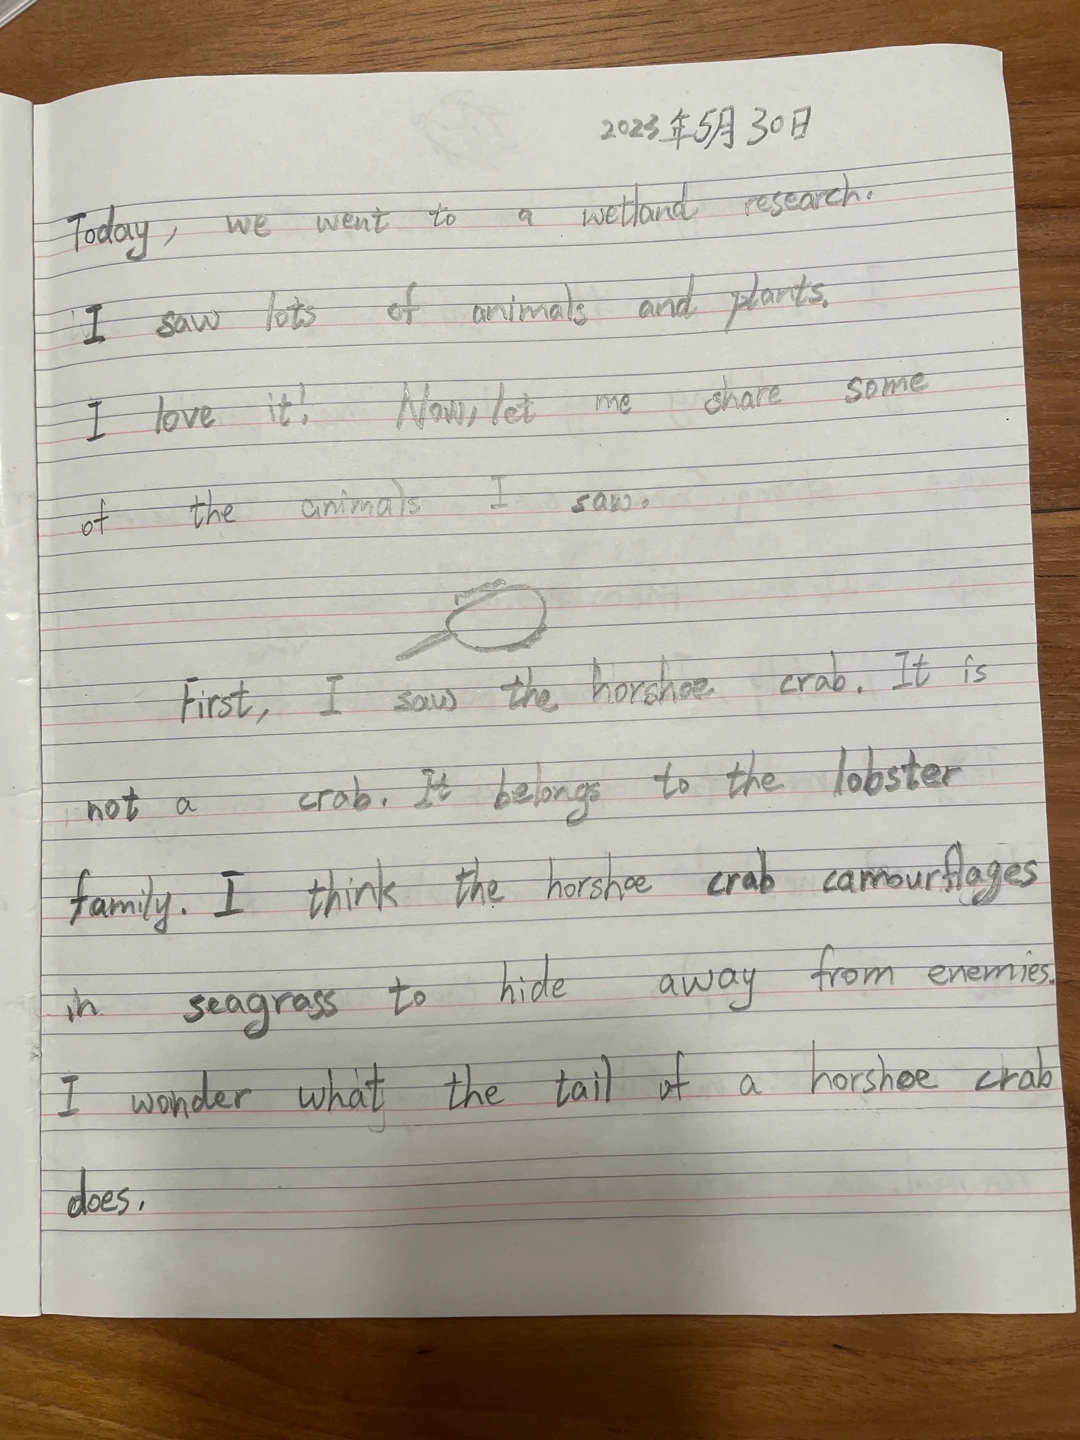 2023年5月30日
Today, we went to a wetland research.
I saw lots of animals and plants.
I love it! Now, let me share some
of the animals I saw.
First, I saw the horshoe crab. It is
not a crab. It belongs to the lobster
family. I think the horshoe crab camourflages
in seagrass to hide away from enemies.
I wonder what the tail of a horshoe crab
does.